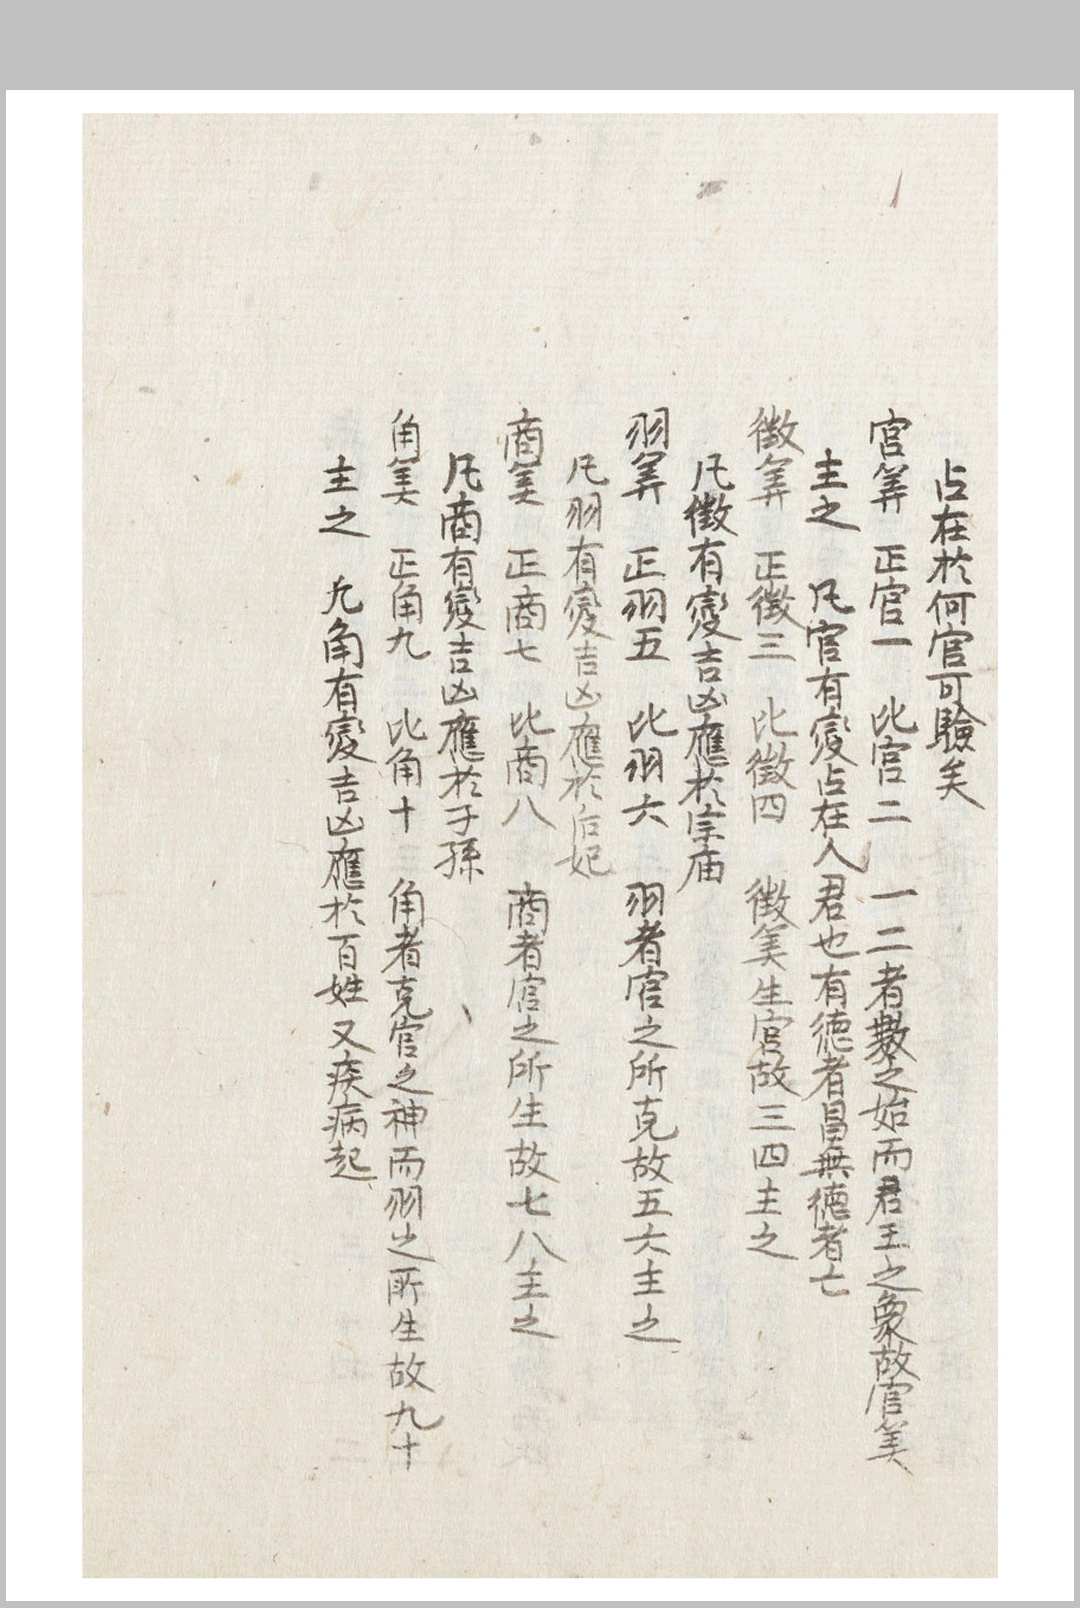 占在於何宮可驗矣
宮筭　正宮一　比宮二　一二者數之始而君王之象故宮筭
主之　凡宮有變占在人君也有德者昌無德者亡
徵筭　正徵三　比徵四　徵筭生宮故三四主之
凡徵有變吉凶應於宗庙
羽筭　正羽五　比羽六　羽者宮之所克故五六主之
凡羽有變吉凶應於后妃
商筭　正商七　比商八　商者宮之所生故七八主之
凡商有變吉凶應於子孫
角筭　正角九　比角十　角者克宮之神而羽之所生故九十
主之　凡角有變吉凶應於百姓又疾病起